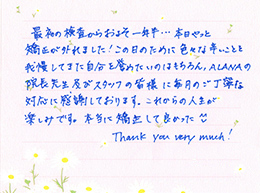 最初の検査からおよそ一年半…本日やっと
矯正が外れました！この日のために色々な辛いことを
我慢してきた自分を誉めたいのはもちろん，ALANAの
院長先生及びスタッフの皆様に毎月のご丁寧な
対応に感謝しております。これからの人生が
楽しみです。本当に矯正して良かった
Thank you very much!